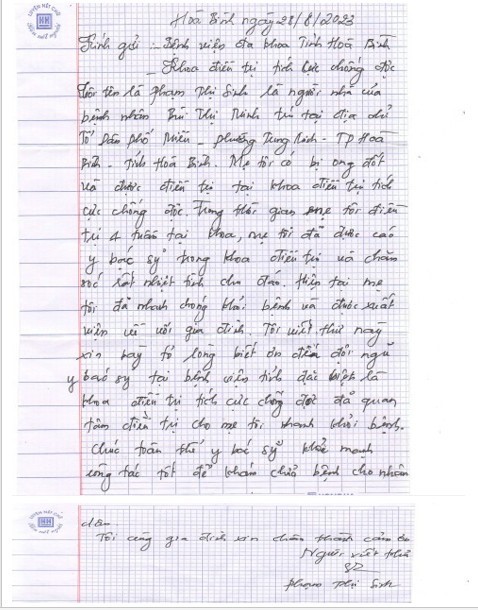 Hoà Bình ngày 28/8/2023
Kính gửi: - Bệnh viện đa khoa Tỉnh Hoà Bình
- Khoa điều trị tích cực chống độc
Tôi tên là Phạm Thị Sinh là người nhà của
bệnh nhân Bùi Thị Ninh trú tại địa chỉ
Tổ Dân Phố Miều - phường Trung Minh - TP Hoà
Bình - tỉnh Hoà Bình. Mẹ tôi có bị ong đốt
và được điều trị tại khoa điều trị tích
cực chống độc. Trong thời gian mẹ tôi điều
trị 4 tuần tại khoa, mẹ tôi đã được các
y bác sỹ trong khoa điều trị và chăm
sóc rất nhiệt tình chu đáo. Hiện tại mẹ
tôi đã nhanh chóng khỏi bệnh và được xuất
viện về với gia đình. Tôi viết thư này
xin bày tỏ lòng biết ơn đến đội ngũ
y bác sỹ tại bệnh viện tỉnh đặc biệt là
khoa điều trị tích cực chống độc đã quan
tâm điều trị cho mẹ tôi nhanh khỏi bệnh.
Chúc toàn thể y bác sỹ khoẻ mạnh
công tác tốt để khám chữa bệnh cho nhân
dân.
Tôi cùng gia đình xin chân thành cảm ơn
Người viết thư
Phạm Thị Sinh